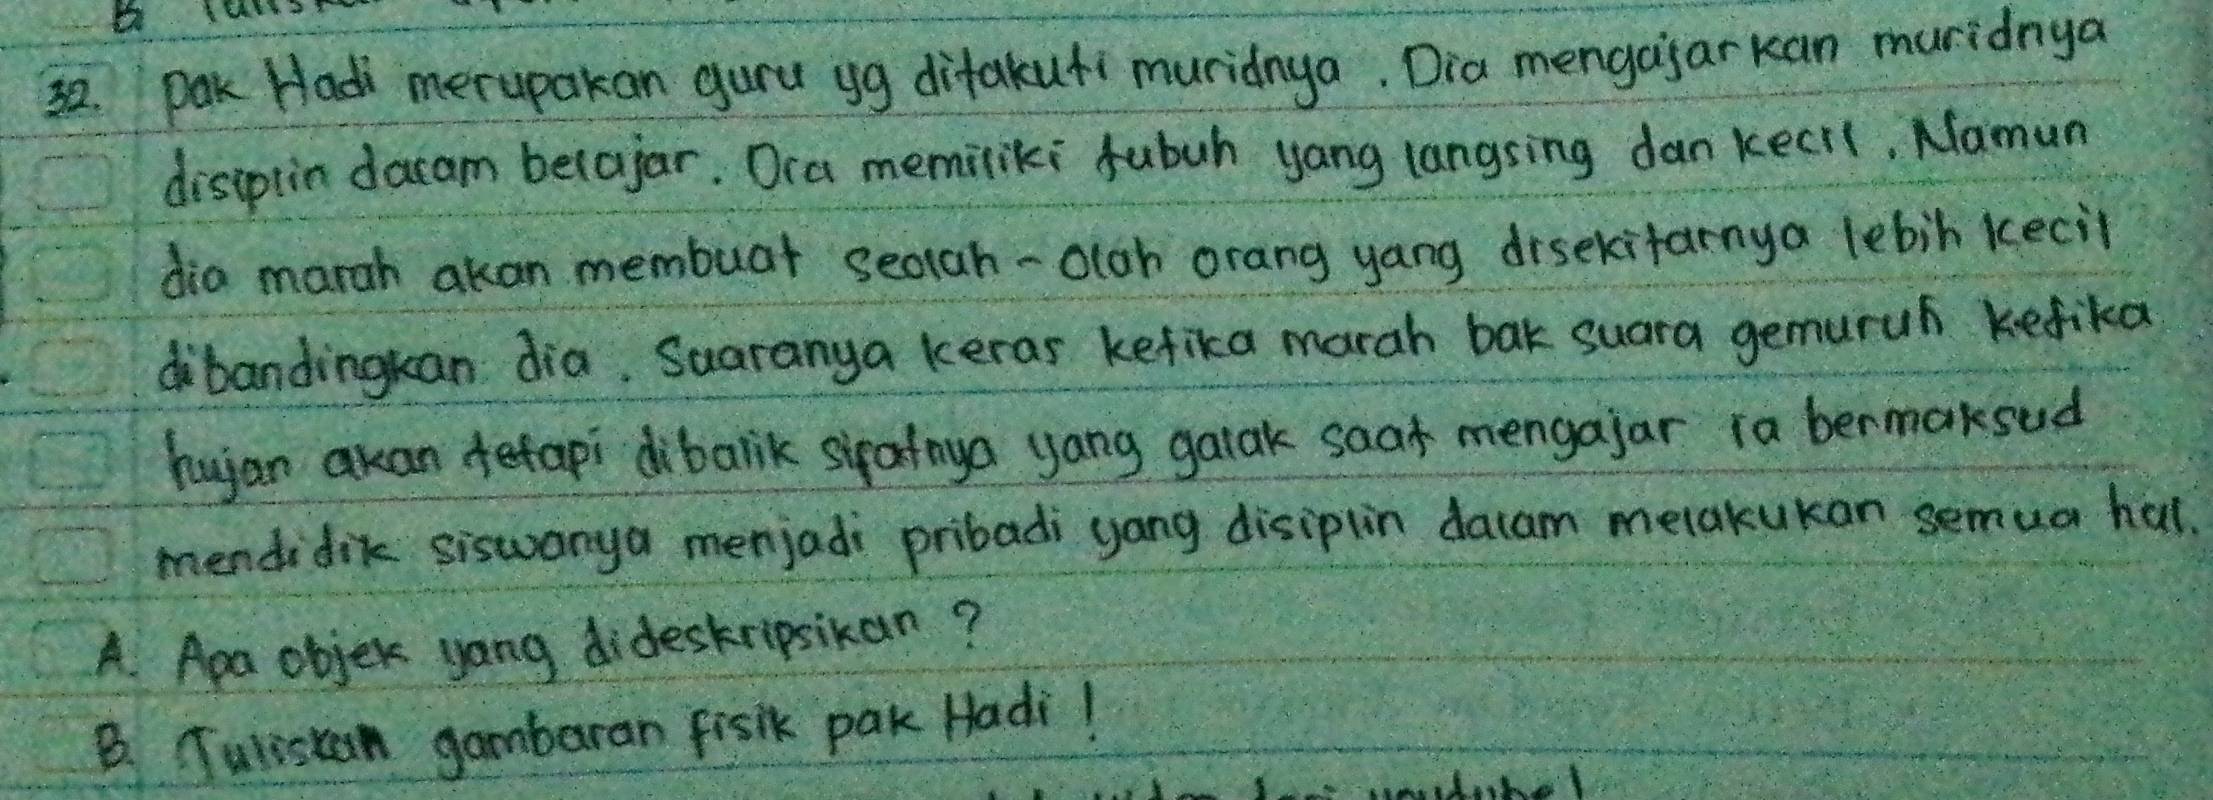 32. Pak Hadi merupakan guru yg ditakuti muridnya. Dia mengajarkan muridnya
disiplin dalam belajar. Dia memiliki tubuh yang langsing dan kecil. Namun
dia marah akan membuat seolah-olah orang yang disekitarnya lebih kecil
dibandingkan dia. Suaranya keras ketika marah bak suara gemuruh ketika
hujan akan tetapi dibalik sifatnya yang galak saat mengajar ia bermaksud
mendidik siswanya menjadi pribadi yang disiplin dalam melakukan semua hal.
A. Apa objek yang dideskripsikan?
B. Tuliskan gambaran fisik pak Hadi!